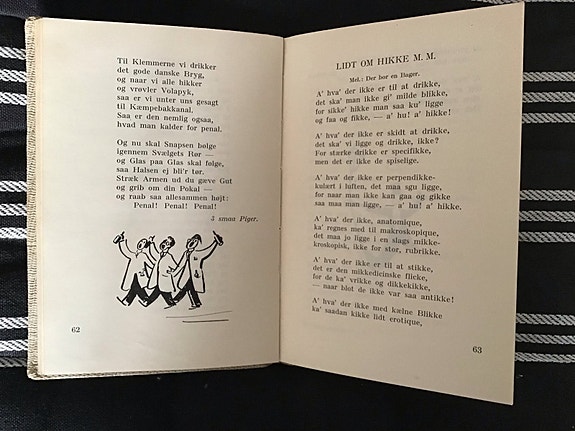 Til Klemmerne vi drikker
det gode danske Bryg,
og naar vi alle hikker
og vrøvler Volapyk,
saa er vi unter uns gesagt
til Kæmpebakkanal.
Saa er den nemlig ogsaa,
hvad man kalder for penal.
Og nu skal Snapsen bølge
igennem Svælgets Rør —
og Glas paa Glas skal følge,
saa Halsen ej bli'r tør.
Stræk Armen ud du gæve Gut
og grib om din Pokal —
og raab saa allesammen højt:
Penal! Penal! Penal!
3 smaa Piger.
62
LIDT OM HIKKE M. M.
Mel.: Der bor en Bager.
A' hva' der ikke er til at drikke,
det ska' man ikke gi' milde blikke,
for sikke' hikke man saa ku' ligge
og faa og fikke, — a' hu! a' hikke!
A' hva' der ikke er skidt at drikke,
det ska' vi ligge og drikke, ikke?
For stærke drikke er specifikke,
men det er ikke de spiselige.
A' hva' der ikke er perpendikke-
kulært i luften, det maa sgu ligge,
for naar man ikke kan gaa og gikke
saa maa man ligge, — a' hu! a' hikke.
A' hva' der ikke, anatomique,
ka' regnes med til makroskopique,
det maa jo ligge i en slags mikke-
kroskopisk, ikke for stor, rubrikke.
A' hva' der ikke er til at stikke,
det er den mikkedicinske flicke,
for de ka' vrikke og dikkekikke,
— naar blot de ikke var saa antikke!
A' hva' der ikke med kælne Blikke
ka' saadan kikke lidt erotique,
63